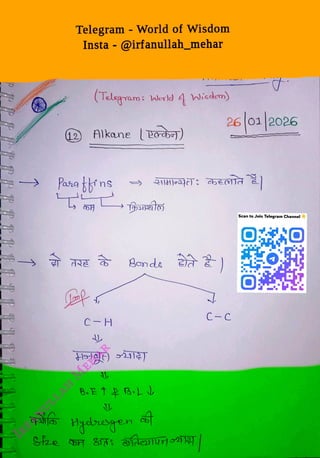 Telegram - World of Wisdom
Insta - @irfanullah_mehar
(Telegram: World of Wisdom)
26/01/2026
(12) Alkane (एल्केन)
→ Paraffins ⇒ सामान्यत: कहलाते हैं।
कम क्रियाशील
Scan to Join Telegram Channel
→ दो तरह के Bonds होते हैं।
Imp
C-H C-C
मजबूत ज्यादा
B.E ↑ & B.L ↓
क्योंकि Hydrogen की
Size कम अतः अतिव्यापन ज्यादा।